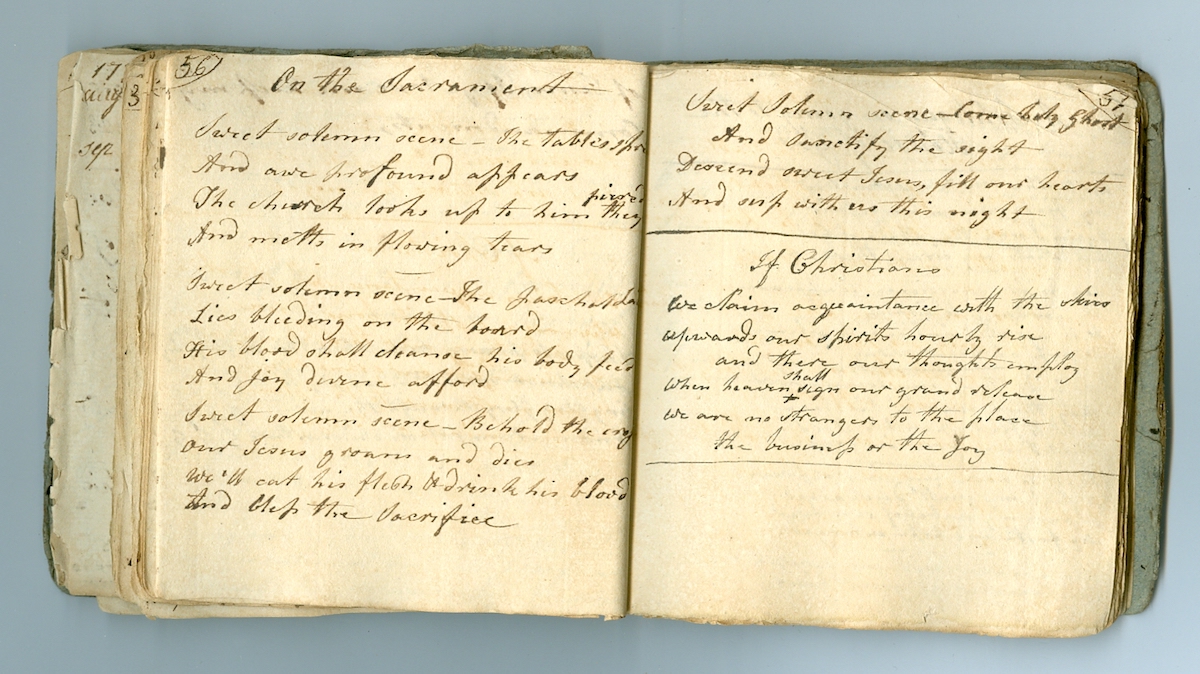 17
Aug 3
Sep
56
On the Sacrament
Sweet solemn scene - The tables spre
And awe profound appears
The church looks up to him they pierc'd
And melts in flowing tears
Sweet solemn scene - The paschal La
Lies bleeding on the board
His blood shall cleanse his body feed
And Joy divine afford
Sweet solemn scene - Behold the cros
our Jesus groans and dies
We'll eat his flesh & drink his blood
And bless the Sacrifice
57
Sweet Solemn scene - Come holy Ghost
And sanctify the sight
Descend sweet Jesus, fill our hearts
And sup with us this night
If Christians
we claim acquaintance with the skies
upwards our spirits hourly rise
and there our thoughts employ
When heaven shall sign our grand release
we are no strangers to the place
the business or the Joy